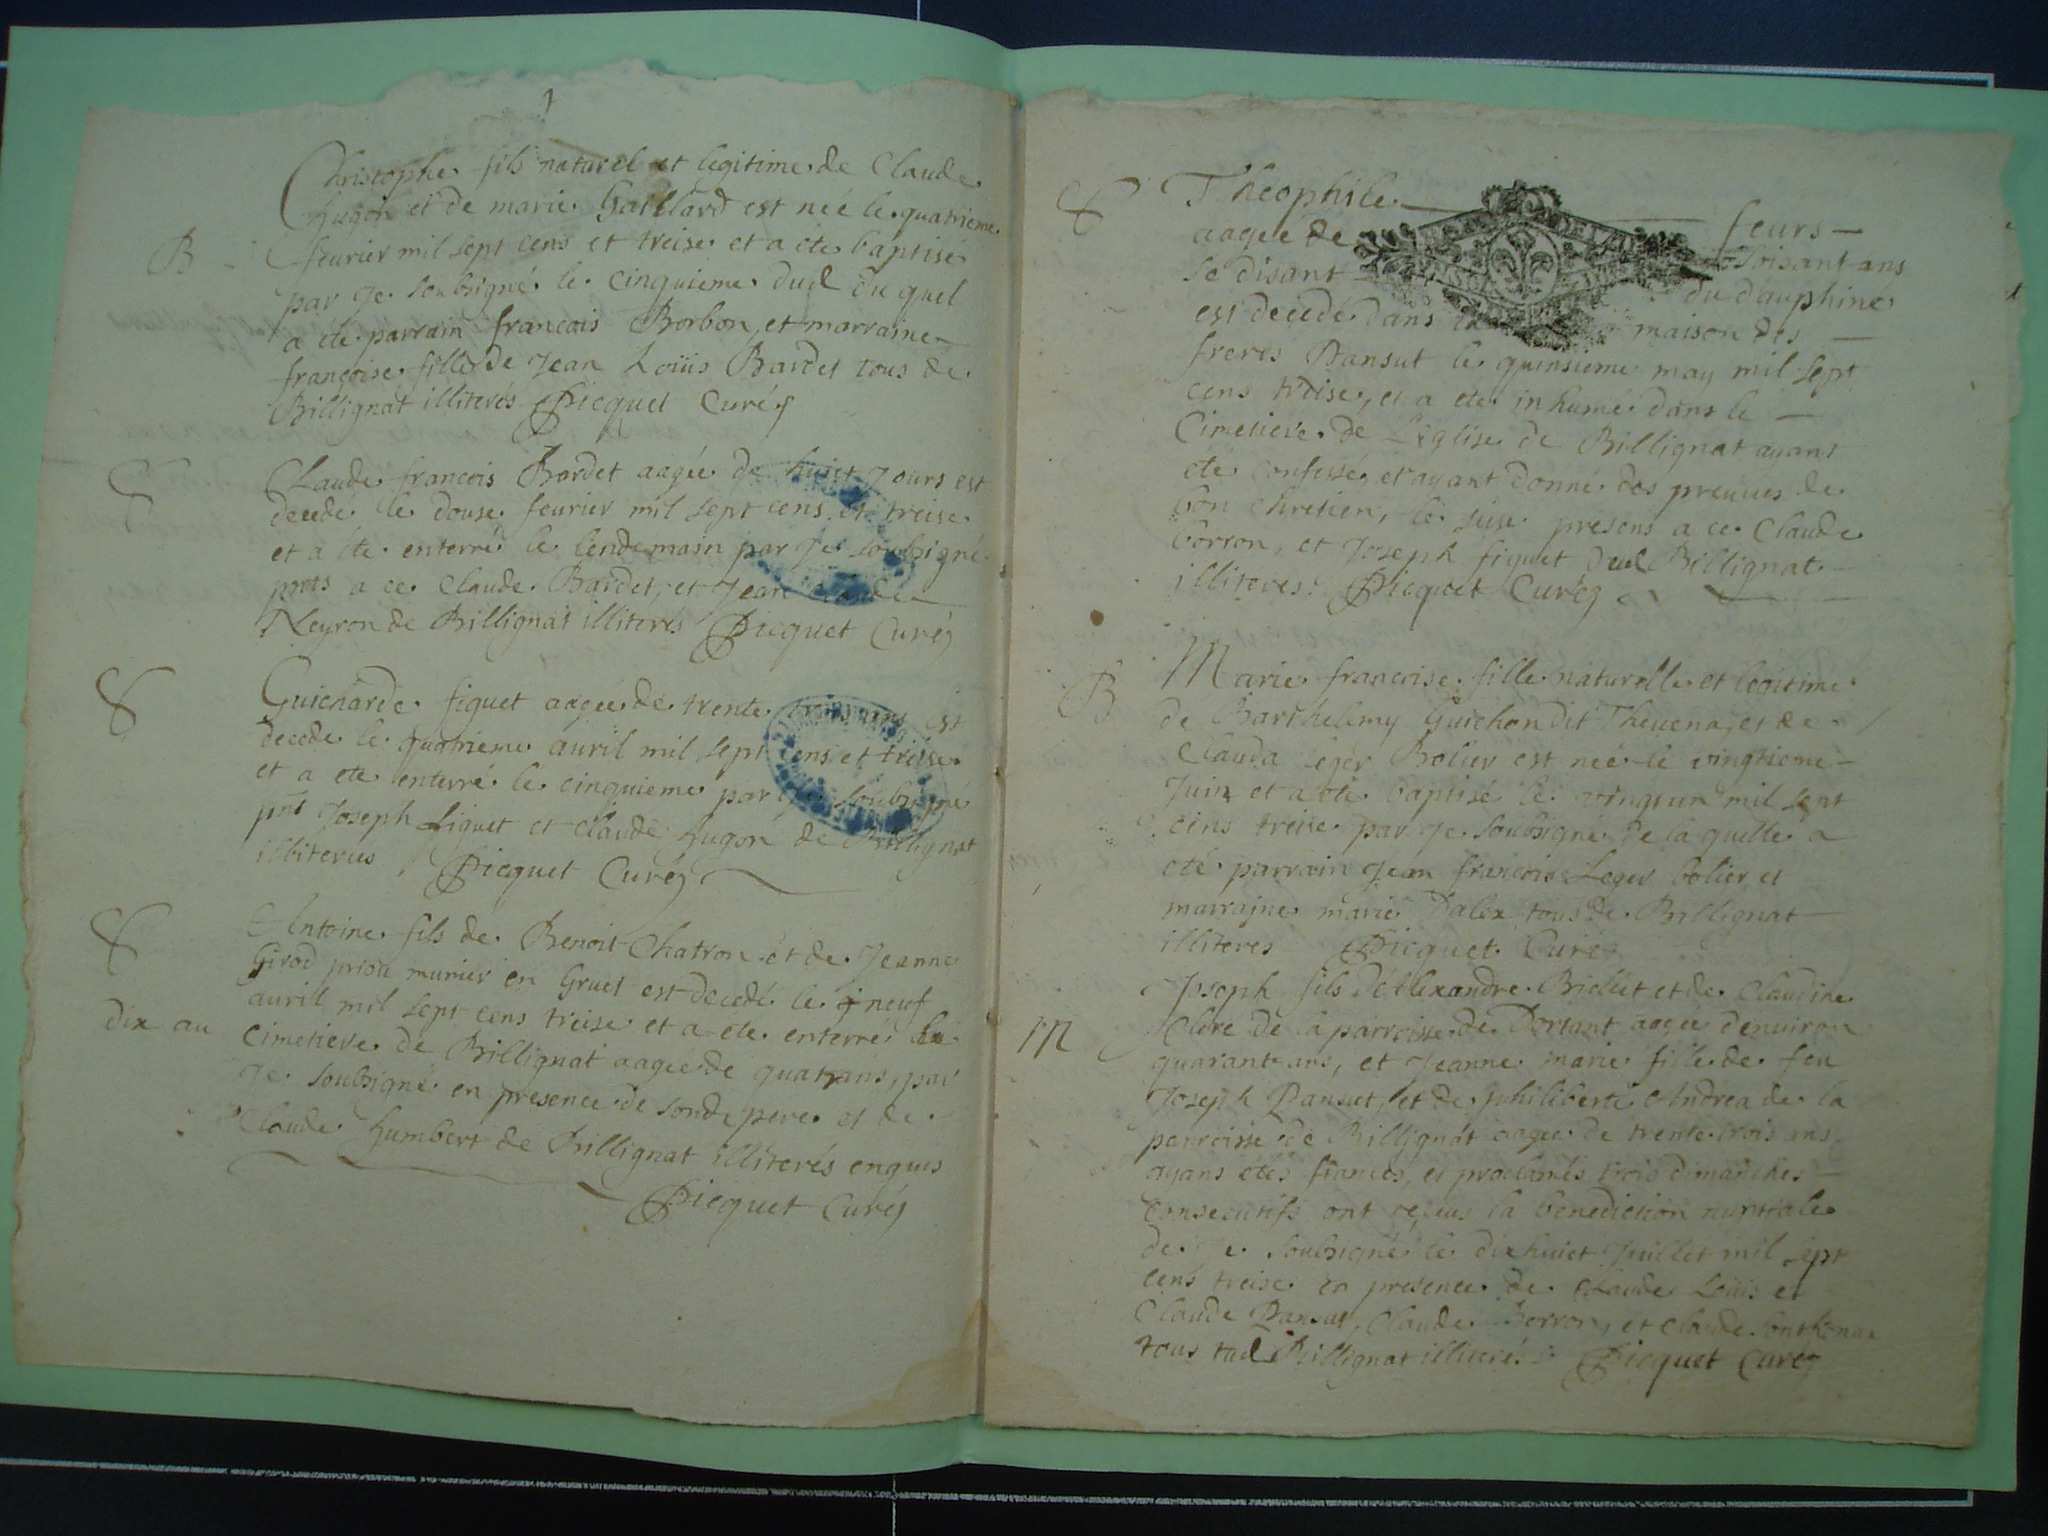 Christophe fils naturel et legitime de Claude
Hugon et de marie Gaillard est neé le quatrieme
B
feurier mil sept cens et treise et a ete baptisé
par Je soubsigné le cinquieme dud du quel
a ete parrain francois Borbon, et marraine
françoise fille de Jean Loüis Bardet tous de
Billignat illiterés Picquet Curé
Claude francois Bardet aagée de huict Jours est
decede le douse feurier mil sept cens et treise
et a ete enterré le lendemain par Je soubsigné
pnts a ce Claude Bardet, et Jean Claude
Neyron de Billignat illiterés Picquet Curé
S
Guicharde figuet aageé de trente trois ans est
decede le quatrieme auril mil sept cens et treise
et a ete enterré le cinquieme par Je soubsigné
pnt Joseph figuet et Claude Hugon de Billignat
illiterés Picquet Curé
S
Antoine fils de Benoit Chatron et de Jeanne
Girod munier en Gruet est decedé le neuf
auril mil sept cens treise et a ete enterré
dix au
Cimetiere de Billignat aagée de quatrans, par
Je soubsigné en presence de sond pere et de
Claude Humbert de Billignat illiterés enquis
Picquet Curé
S
Theophile feurs
aageé de soisant ans
se disant du dauphine
est decedé dans la maison des
freres Pansut le quinsieme may mil sept
cens treise, et a ete inhumé dans le
Cimetiere de L'eglise de Billignat ayant
eté confessé, et ayant donné des preuues de
bon chretien, le seise presens a ce Claude
borron, et Joseph figuet dud Billignat
illiteres Picquet Curé
B
Marie francoise fille naturelle et legitime
de Barthelemy Guichon dit Theuenas, et de
Clauda leger Bolier est neé le vingtieme
Juin et a ete baptisé le vingt un mil sept
cens treise par Je soubsigné de la quelle a
eté parrain Jean francois Leger bolier et
marraine marie Dalex tous de Billignat
illiteres Picquet Curé
Joseph fils d'Alexandre et de Claudine
M
Clere de la parroisse de Dortant aageé d'enuiron
quarant ans, et Jeanne marie fille de feu
Joseph Pansut, et de philiberte Andrea de la
parroisse de Billignat aageé de trente trois ans
ayans etés fiances, et proclamés trois dimanches
consecutifs ont reçeus la benediction nuptiale
de Je soubsigné le dix huict Juillet mil sept
cens treise en presence de Claude Loüis et
Claude Pansut, Claude Borron, et Claude
tous dud Billignat illiterés Picquet Curé